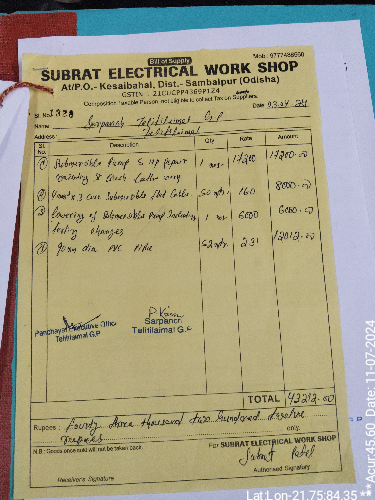 Bill of Supply
Mob.: 9777488560
SUBRAT ELECTRICAL WORK SHOP
At/P.O.- Kesaibahal, Dist.- Sambalpur (Odisha)
Composition Taxable Person, not eligible to collect Tax on Suppliers.
Sl. No. 1328
Date
Name Sarpanch Telitilaimal G.P
Address Telitilaimal
Sl. No. Description Qty. Rate Amount
1 Submersible Pump 5 HP Repair 1 nos. 17200 17200.00
2 4mm x 3 Core Submersible Flat Cable 50 mtr. 160 8000.00
3 Lowering of Submersible Pump 1 6000 6000.00
testing charges
4 90mm dia PVC Pipe 52 mtr. 231 12012.00
Panchayat Executive Officer
Telitilaimal G.P
Sarpanch
Telitilaimal G.P
TOTAL 43212.00
Rupees : Fourty three thousand two hundred twelve only.
Rupees
N.B.: Goods once sold will not be taken back.
For SUBRAT ELECTRICAL WORK SHOP
Subrat Patel
Receiver's Signature
Authorised Signatory
Lat:Lon-21.75:84.35
**Acur:45.60, Date: 11-07-2024